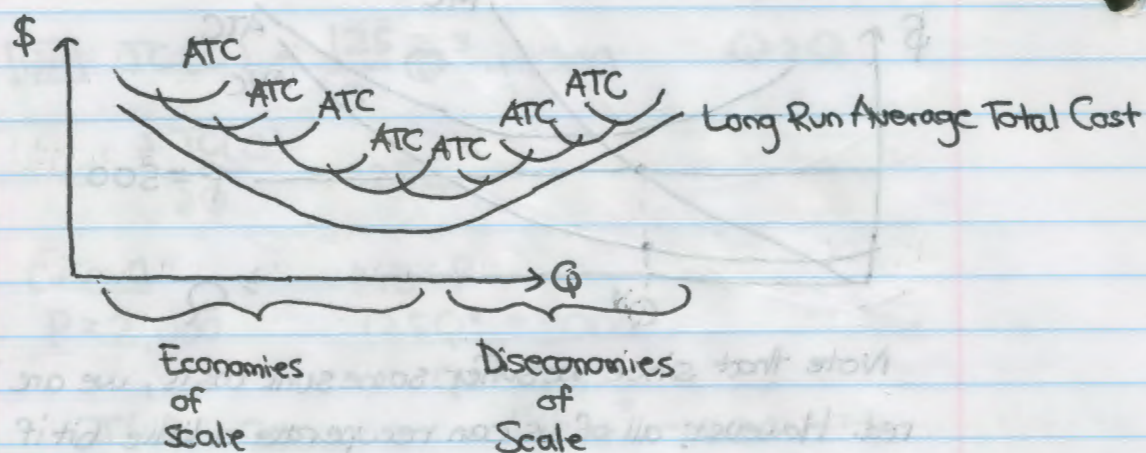 $
ATC
ATC
ATC
ATC
ATC
ATC
ATC
Long Run Average Total Cost
Q
Economies
of
Scale
Diseconomies
of
Scale